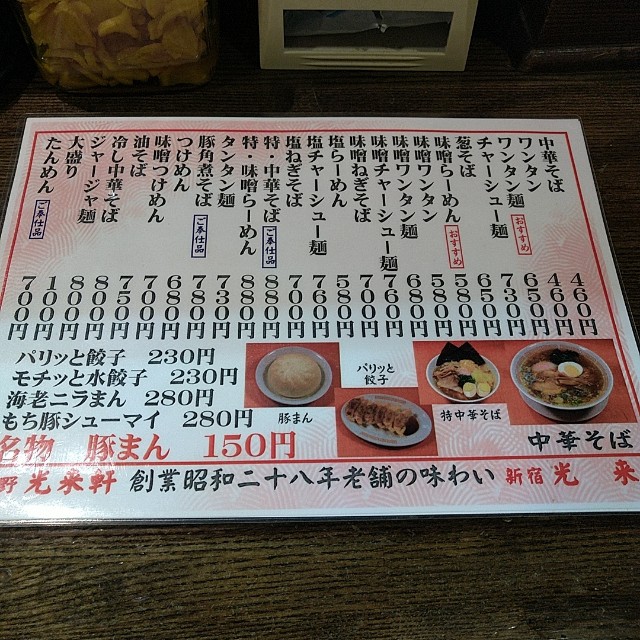 中華そば 460円
ワンタン 460円
ワンタン麺 おすすめ 650円
チャーシュー麺 730円
葱そば 650円
味噌らーめん おすすめ 580円
味噌ワンタン 580円
味噌ワンタン麺 680円
味噌チャーシュー麺 760円
味噌ねぎそば 700円
塩らーめん 580円
塩チャーシュー麺 760円
塩ねぎそば 700円
特・中華そば ご奉仕品 880円
特・味噌らーめん 880円
タンタン麺 730円
豚角煮そば ご奉仕品 780円
つけめん 680円
味噌つけめん 700円
油そば 750円
冷し中華そば 800円
ジャージャ麺 800円
大盛り 100円
たんめん ご奉仕品 700円
パリッと餃子 230円
モチッと水餃子 230円
海老ニラまん 280円
もち豚シューマイ 280円
名物 豚まん 150円
豚まん
パリッと
餃子
特中華そば
中華そば
野 光来軒 創業昭和二十八年老舗の味わい 新宿 光 来